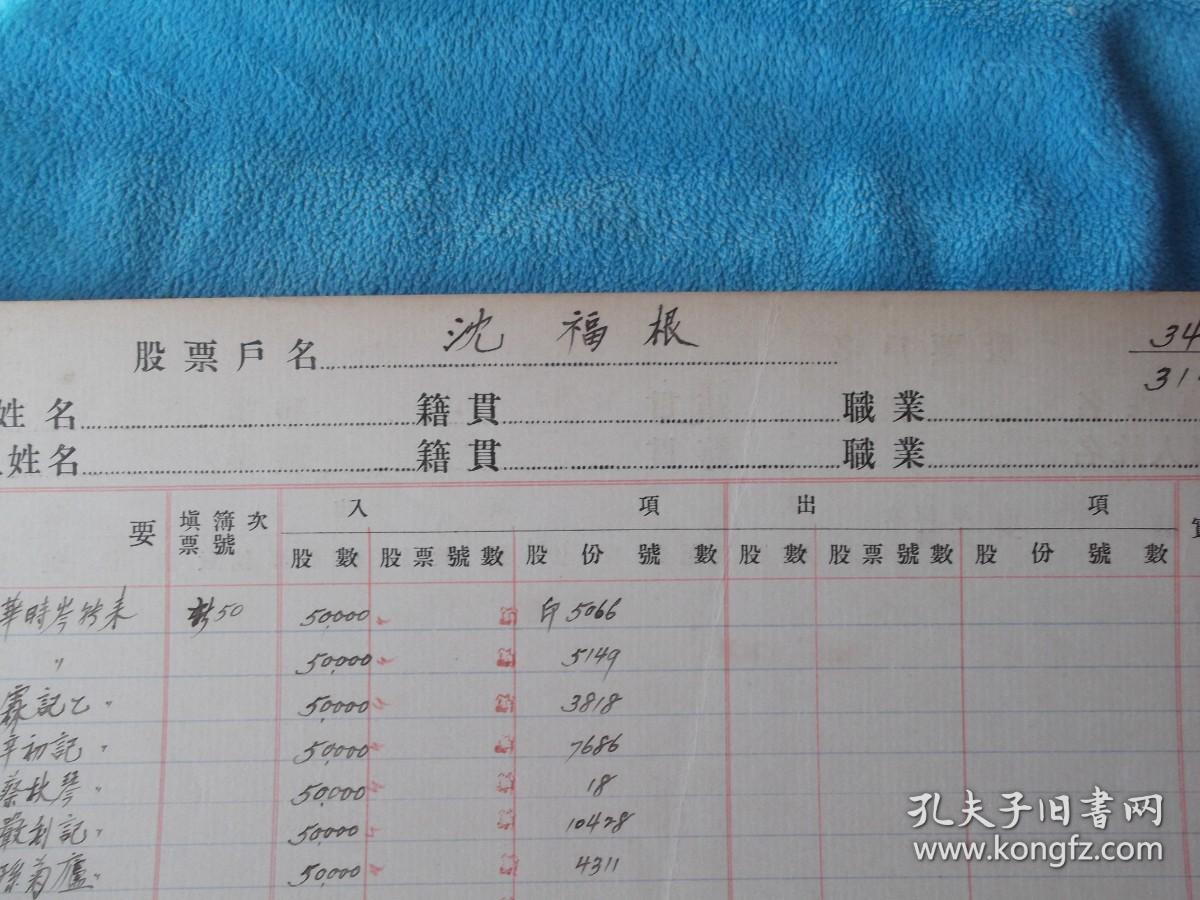 股票戶名 沈福根
34
31
姓名 籍貫 職業
姓名 籍貫 職業
要 填票 簿號 次 入項 出項
股數 股票號數 股份號數 股數 股票號數 股份號數
華時岑 50 50,000 印 5066
〃 50,000 5149
霖記乙 〃 50,000 3818
辛初記 〃 50,000 7686
蔡秋琴 〃 50,000 18
嚴利記 〃 50,000 10428
孫菊廬 〃 50,000 4311
孔夫子旧书网
www.kongfz.com